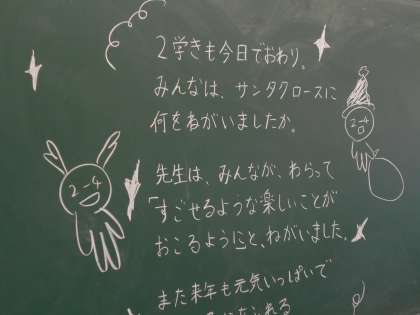 2学きも今日でおわり。
みんなは、サンタクロースに
何をねがいましたか。
先生は、みんなが、わらって
「すごせるような楽しいことが
おこるように」と、ねがいました。
また来年も元気いっぱいで
2-4
2-4